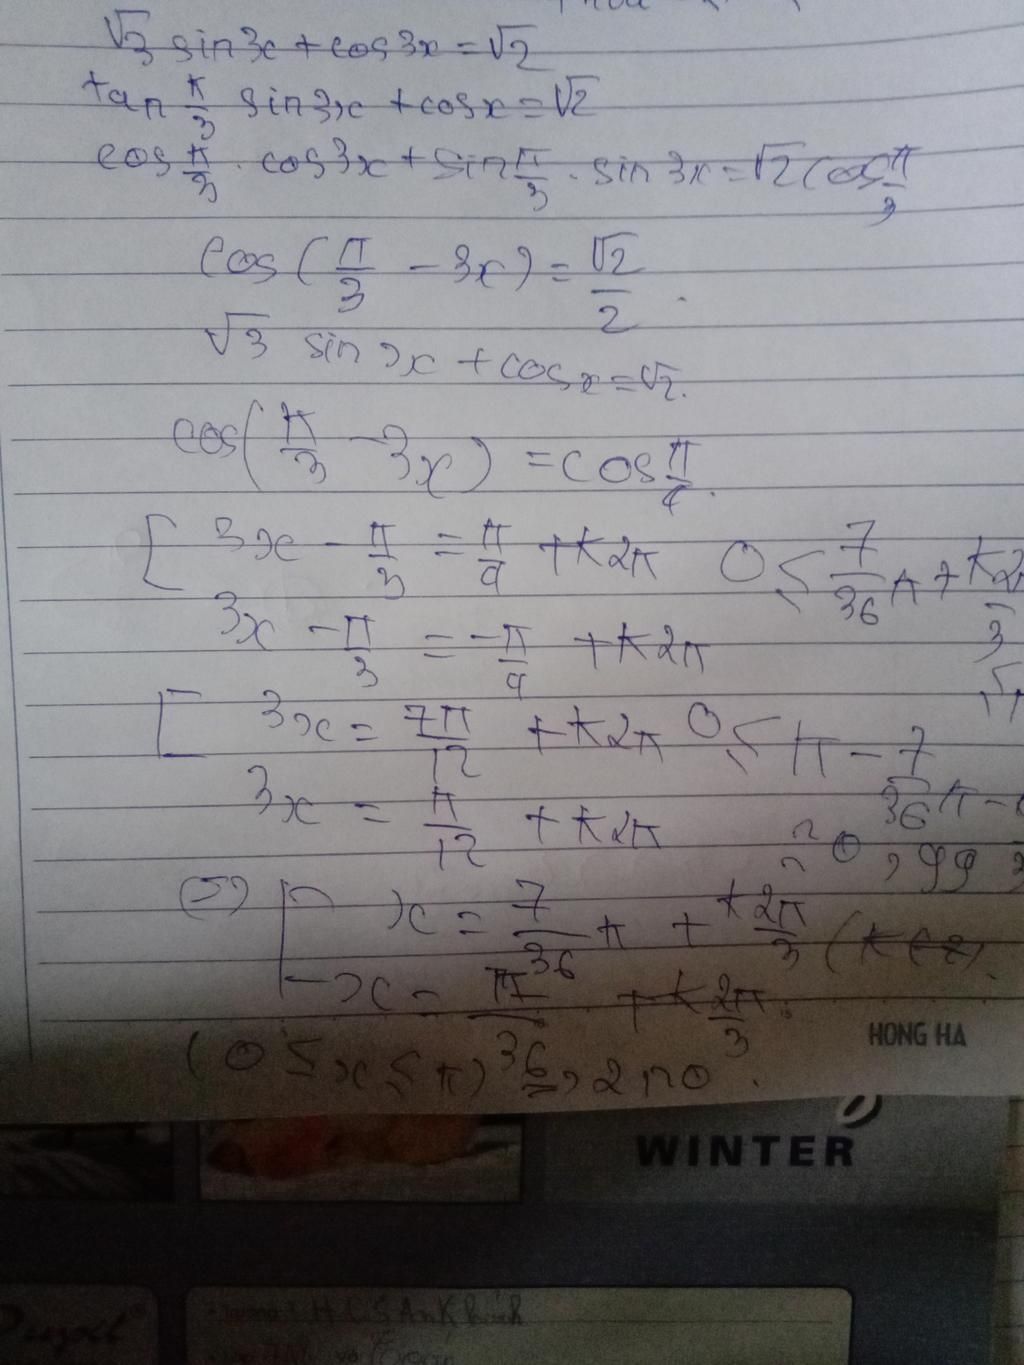 √3 sin3x + cos3x = √2
tan π/3 sin3x + cosx = √2
cos π/3 . cos3x + sin π/3 . sin3x = √2 cos π/3
cos(π/3 - 3x) = √2/2 .
√3 sin 3x + cosx = √2.
cos(π/3 - 3x) = cos π/4.
[ 3x - π/3 = π/4 + k2π 0 ≤ 7/36 π + k2π/3 ≤ π
3x - π/3 = -π/4 + k2π
[ 3x = 7π/12 + k2π 0 ≤ π - 7/36 π -
3x = π/12 + k2π 0,99
(=) [ x = 7/36 π + k2π/3 (k∈Z).
x = π/36 + k2π/3.
(0 ≤ x ≤ π) => 2 no.
HONG HA
WINTER